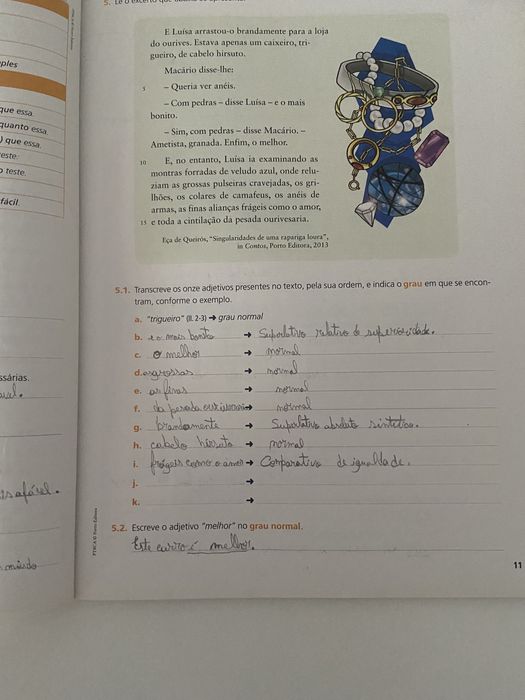 5. Lê o excerto que
E Luísa arrastou-o brandamente para a loja
do ourives. Estava apenas um caixeiro, tri-
gueiro, de cabelo hirsuto.
Macário disse-lhe:
5 – Queria ver anéis.
– Com pedras – disse Luísa – e o mais
bonito.
– Sim, com pedras – disse Macário. –
Ametista, granada. Enfim, o melhor.
10 E, no entanto, Luísa ia examinando as
montras forradas de veludo azul, onde relu-
ziam as grossas pulseiras cravejadas, os gri-
lhões, os colares de camafeus, os anéis de
armas, as finas alianças frágeis como o amor,
15 e toda a cintilação da pesada ourivesaria.
Eça de Queirós, "Singularidades de uma rapariga loura",
in Contos, Porto Editora, 2013
5.1. Transcreve os onze adjetivos presentes no texto, pela sua ordem, e indica o grau em que se encon-
tram, conforme o exemplo.
a. "trigueiro" (ll. 2-3) ➔ grau normal
b. e o mais bonito ➔ Superlativo relativo de superioridade.
c. o melhor ➔ normal
d. as grossas ➔ normal
e. as finas ➔ normal
f. da pesada ourivesaria ➔ normal
g. brandamente ➔ Superlativo absoluto sintético.
h. cabelo hirsuto ➔ normal
i. frágeis como o amor ➔ Comparativo de igualdade.
j. ➔
k. ➔
5.2. Escreve o adjetivo "melhor" no grau normal.
Este carro é melhor.
11
ples
que essa.
quanto essa.
) que essa.
este.
o teste.
fácil.
ssárias.